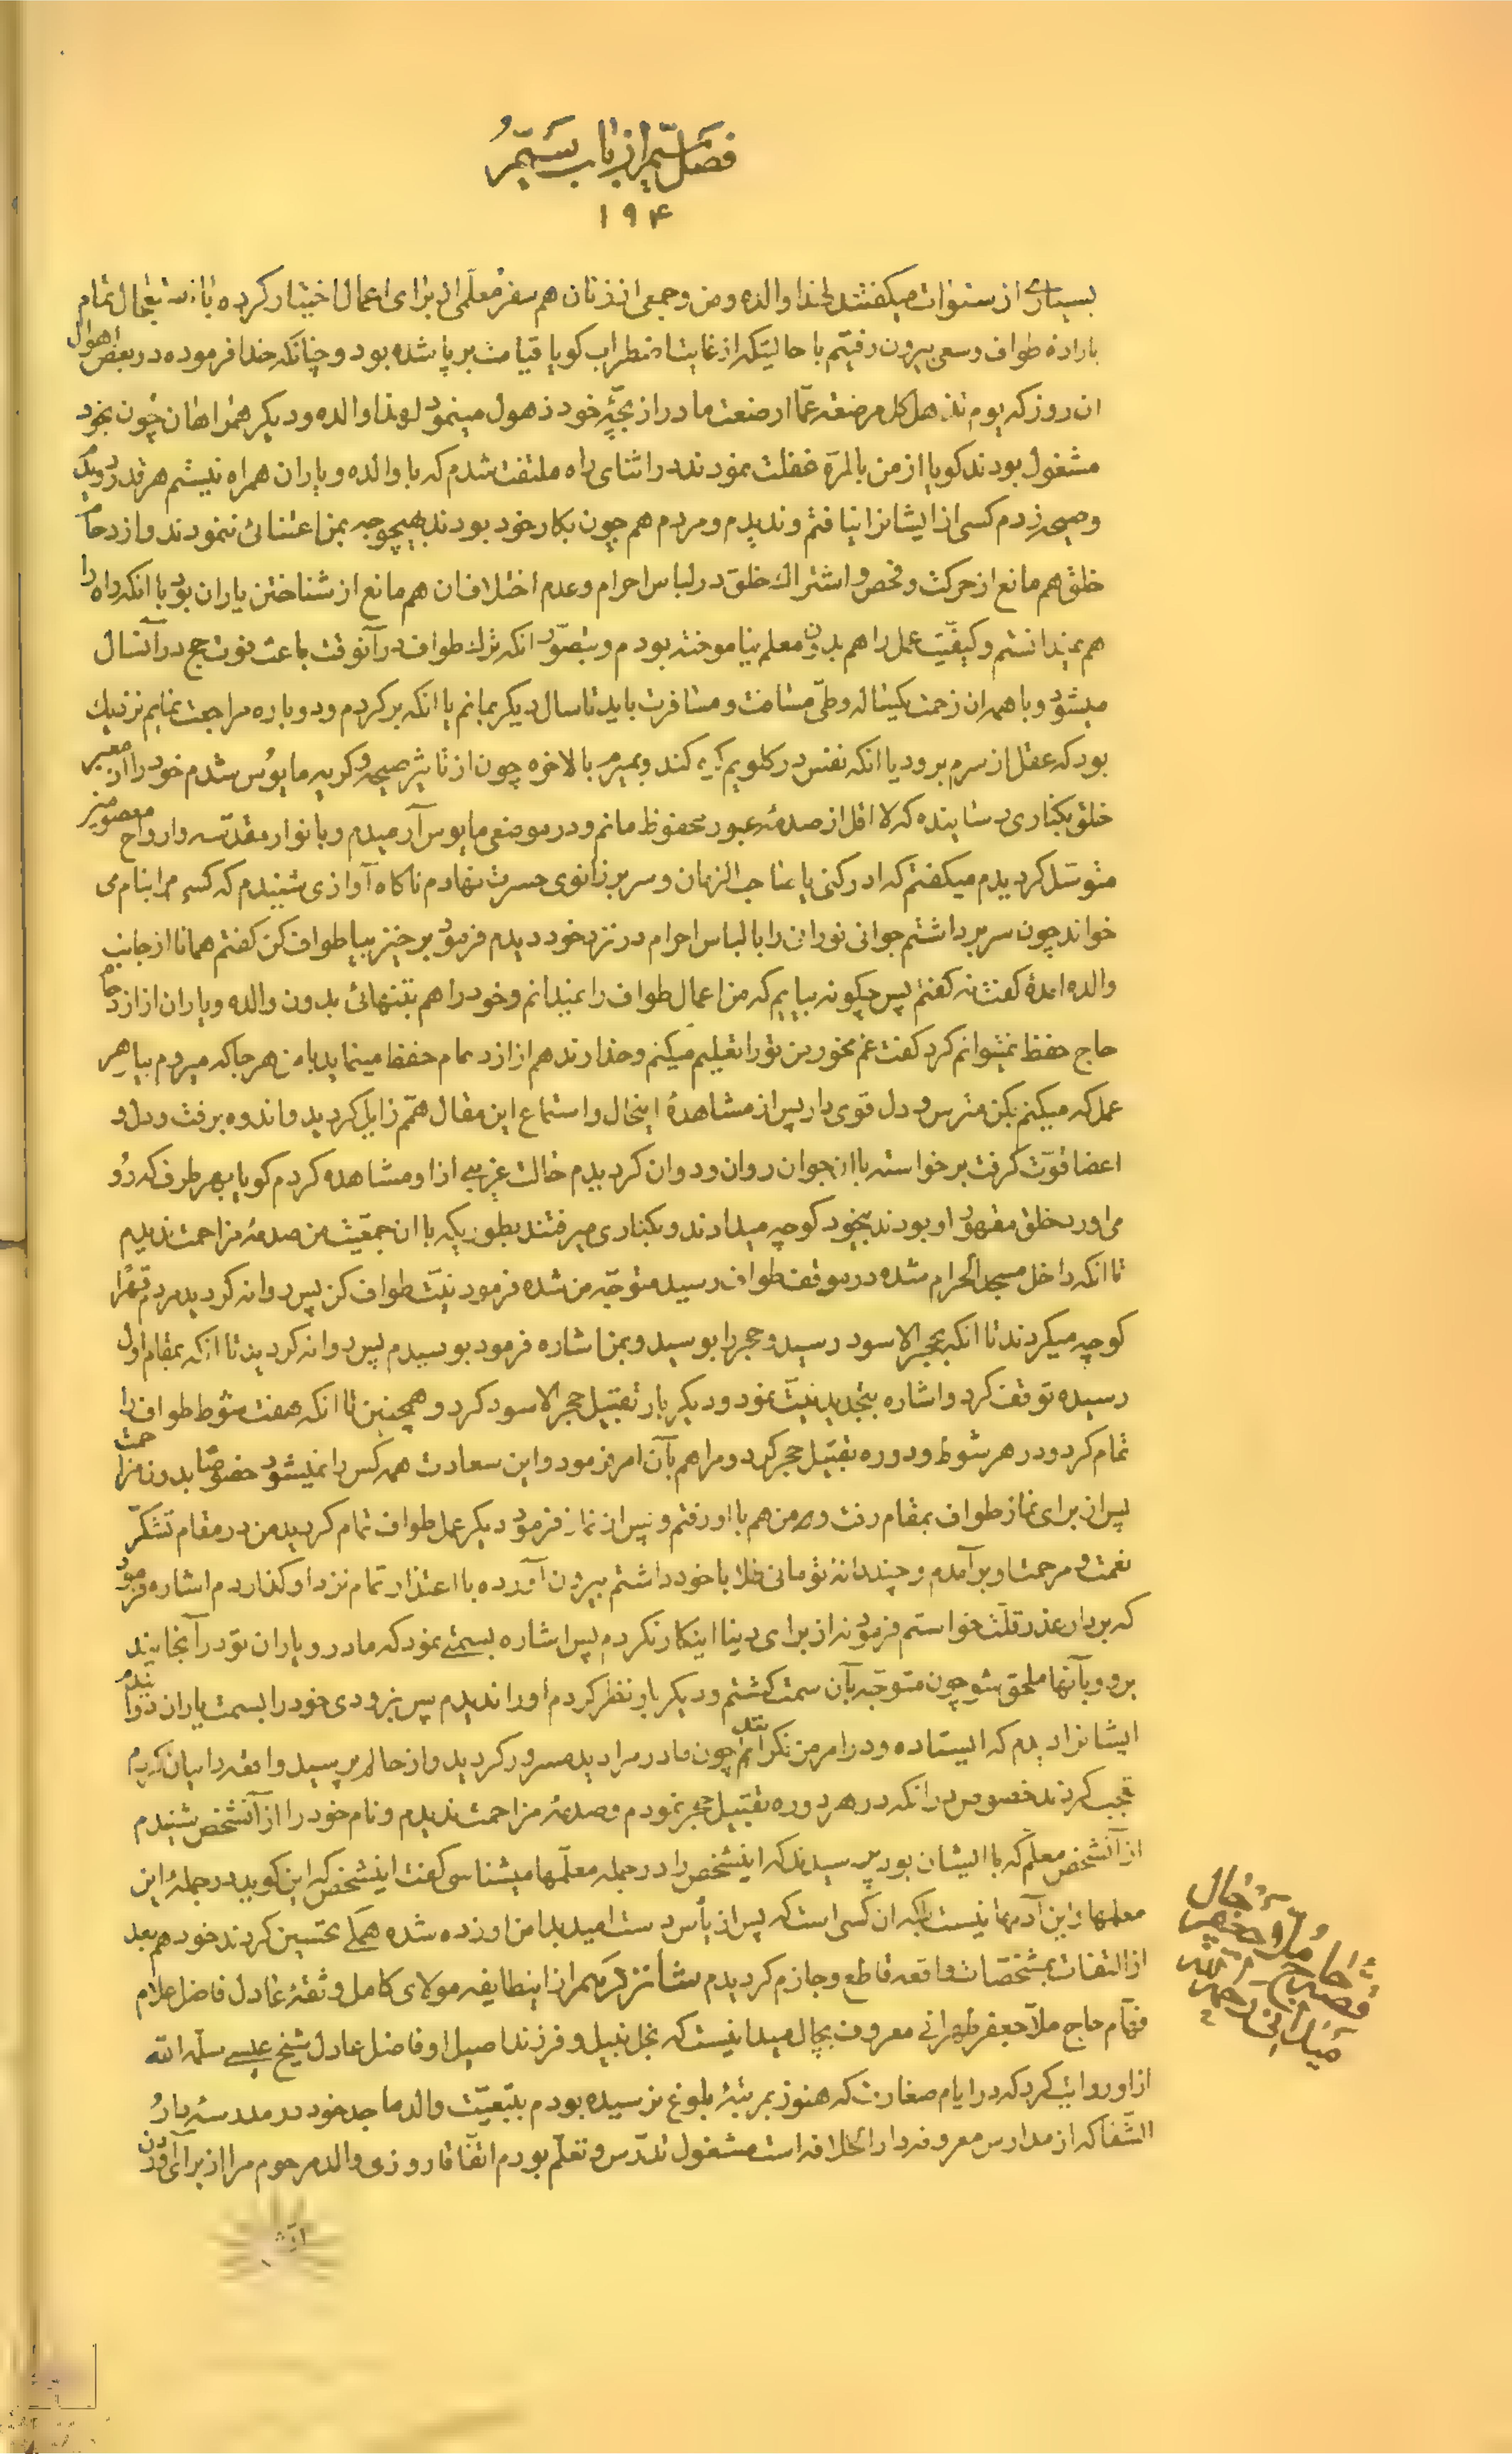 فصل ششم از باب ششم
۱۹۴
بسیاری از سنوات میکفتند لهذا والده و من و جمعی از زنان هم سفر معلمی از برای اعمال اختیار کرده با استعجال تمام
باراده طواف و سعی بیرون رفتیم با حالتیکه از غایت اضطراب کویا قیامت برپا شده بود و چنانکه خدا فرموده در بعض اهوال
ان روز که یوم تذهل کل مرضعة عما ارضعت مادر از بچهٔ خود ذهول مینمود لهذا والده و دیکر همراهان چون بخود
مشغول بودند کویا از من بالمرة غفلت نمودند در اثنای راه ملتفت شدم که با والده و یاران همراه نیستم هر قدر دویدم
و صیحه زدم کسی از ایشانرا نیافتم و ندیدم و مردم هم چون بکار خود بودند بهیچوجه بمن اعتنائی ننمودند و ازدحام
خلق هم مانع از حرکت و فحص و اشتراک خلق در لباس احرام و عدم اختلاف ان هم مانع از شناختن یاران بود با انکه راه را
هم نمیدانستم و کیفیت عمل را هم بدون معلم نیاموخته بودم و بتصور انکه ترک طواف در آنوقت باعث فوت حج در آنسال
میشود و با همه ان زحمت یکساله و طی مسافت و مسافرت باید تا سال دیکر بمانم یا انکه برکردم و دوباره مراجعت نمایم نزدیک
بود که عقل از سرم برود یا انکه نفس در کلویم کره کند و بمیرم بالاخره چون از تاثیر صیحه و کریه مایوس شدم خود را از معبر
خلق بکناری رسانیده که لااقل از صدمهٔ عبور محفوظ مانم و در موضعی مایوس آرمیدم و بانوار مقدسه و ارواح معصومین
متوسل کردیدم میکفتم که ادرکنی یا صاحب الزمان و سر بر زانوی حسرت نهادم ناکاه آوازی شنیدم که کسی مرا بنام می
خواند چون سر برداشتم جوانی نورانی را با لباس احرام در نزد خود دیدم فرمود برخیز بیا طواف کن کفتم همانا از جانب
والده امدهٔ کفت نه کفتم پس چکونه بیایم که من اعمال طواف را نمیدانم و خود را هم بتنهائی بدون والده و یاران از ازدحام
حاج حفظ نمیتوانم کرد کفت غم مخور من تو را تعلیم میکنم و خداوند هم از ازدحام حفظ مینماید با من هر جا که میروم بیا هر
عمل که میکنم بکن مترس و دل قوی دار پس از مشاهدهٔ اینحال و استماع این مقال همم زایل کردید و اندوه برفت و دل و
اعضا قوت کرفت برخواسته با ان جوان روان و دوان کردیدم حالت غریبی از او مشاهده کردم کویا بهر طرف که رو
می اورد خلق مقهور او بودند بیخود کوچه میدادند و بکناری میرفتند بطوریکه با ان جمعیت من صدمهٔ مزاحمت ندیدم
تا انکه داخل مسجد الحرام شده در موقف طواف رسید متوجه من شده فرمود نیت طواف کن پس روانه کردید مردم قهرا
کوچه میکردند تا انکه بحجر الاسود رسید و حجر را بوسید و بمن اشاره فرمود بوسیدم پس روانه کردید تا انکه بمقام اول
رسیده توقف کرد و اشاره بتجدید نیت نمود و دیکر بار تقبیل حجر الاسود کرد و همچنین تا انکه هفت شوط طواف را
تمام کرد و در هر شوط و دوره تقبیل حجر کرد و مرا هم بآن امر فرمود و این سعادت همه کس را نمیشود خصوصا بدون مزاحمت
پس از برای نماز طواف بمقام رفت و من هم با او رفتم و پس از نماز فرمود دیکر عمل طواف تمام کردید من در مقام تشکر
نعمت و مرحمت او برآمدم و چند دانه تومانی طلا با خود داشتم بیرون آورده با اعتذار تمام نزد او کذاردم اشاره فرمود
که بردار عذر قلت خواستم فرمود نه از برای دنیا اینکار نکردم پس اشاره بسمتی نمود که مادر و یاران تو در آنجایند
برو و بآنها ملحق شو چون متوجه بآن سمت کشتم و دیکر بار نظر کردم او را ندیدم پس بزودی خود را بسمت یاران دوانیدم
ایشانرا دیدم که ایستاده و در امر من نکرانند چون مادر مرا دید مسرور کردید و از حالم پرسید واقعه را بیان کردم
تعجب کردند خصوص در انکه در هر دوره تقبیل حجر نمودم و صدمهٔ مزاحمت ندیدم و نام خود را از آنشخص شنیدم
از آنشخص معلم که با ایشان بود پرسیدند که اینشخص را در جمله معلمها میشناسی کفت اینشخص که این کوید در جملهٔ این
معلمها و از این آدمها نیست بلکه ان کسی است که پس از یأس دست امید بدامن او زده شده همکی تحسین کردند خود هم بعد
از التفات بمشخصات واقعه قاطع و جازم کردیدم شانزدهم از اینطایفه مولای کامل و ثقهٔ عادل فاضل علام
فهام حاج ملا جعفر طهرانی معروف بچال میدانیست که نجل نبیل و فرزند اصیل او فاضل عادل شیخ عیسی سلمه الله
از او روایت کرد که در ایام صغارت که هنوز بمرتبهٔ بلوغ نرسیده بودم بتبعیت والد ماجد خود در مدرسهٔ دار
الشفا که از مدارس معروفه دار الخلافه است مشغول تدرس و تعلم بودم اتفاقا روزی والد مرحوم مرا از برای آوردن
قصه حاج ملا جعفر چال میدانی رحمه الله